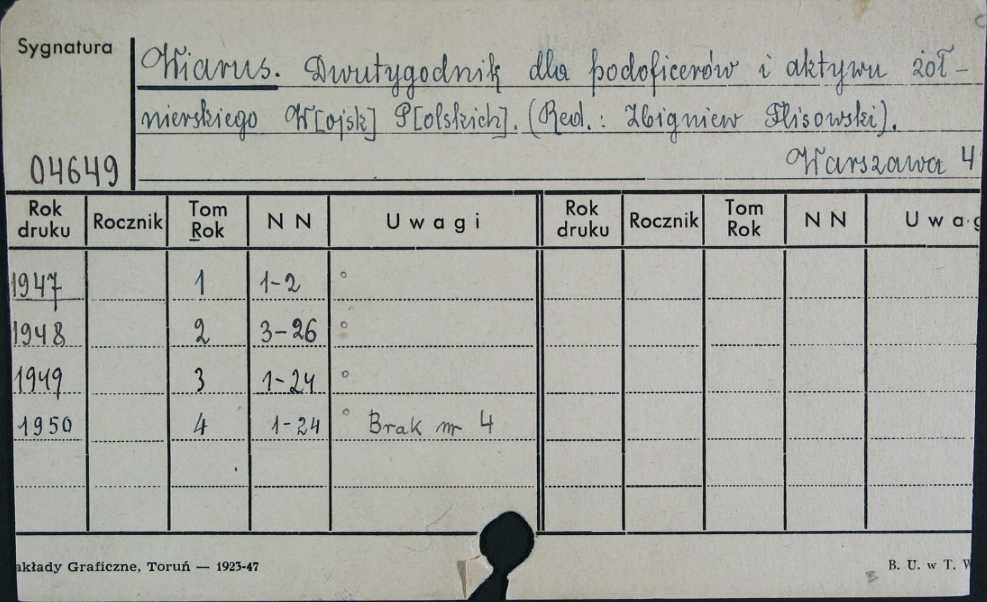 Sygnatura
Wiarus. Dwutygodnik dla podoficerów i aktywu żoł-
nierskiego W[ojsk] P[olskich]. (Red.: Zbigniew Flisowski).
04649
Warszawa 4
Rok druku Rocznik Tom Rok N N Uwagi Rok druku Rocznik Tom Rok N N Uwag
1947 1 1-2 °
1948 2 3-26 °
1949 3 1-24 °
1950 4 1-24 ° Brak nr 4
akłady Graficzne, Toruń — 1923-47 B. U. w T. W